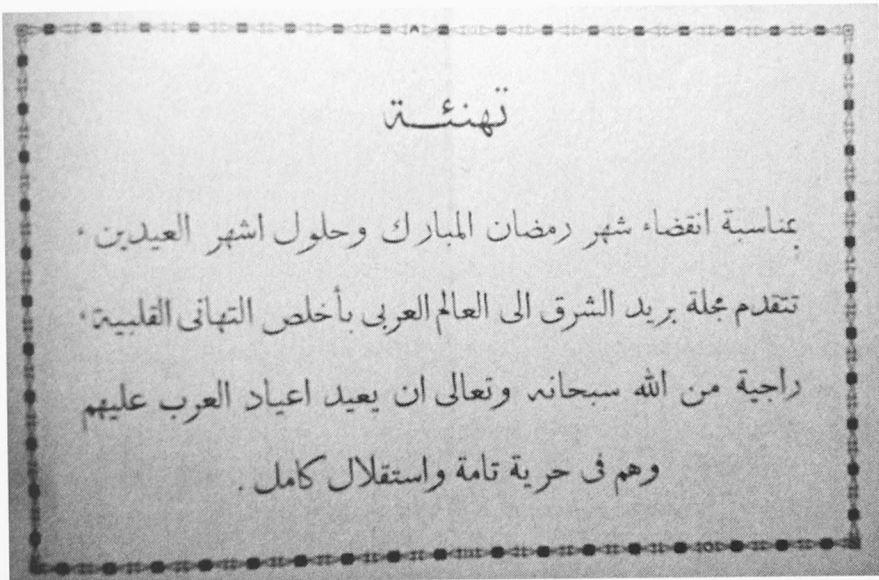 تهنئـــة
بمناسبة انقضاء شهر رمضان المبارك وحلول اشهر العيدين ،
تتقدم مجلة بريد الشرق الى العالم العربى بأخلص التهانى القلبية ،
راجية من الله سبحانه وتعالى ان يعيد اعياد العرب عليهم
وهم فى حرية تامة واستقلال كامل .